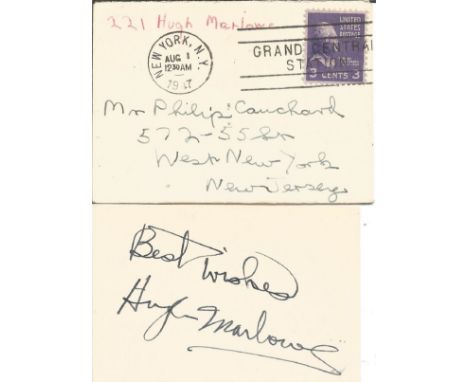 221 Hugh Marlowe
NEW YORK, N.Y.
AUG 1
12 30 AM
1947
GRAND CENTRAL
UNITED STATES POSTAGE
3 CENTS 3
Mr Philip Cauchard
572-55 St
West New York
New Jersey
Best Wishes
Hugh Marlowe